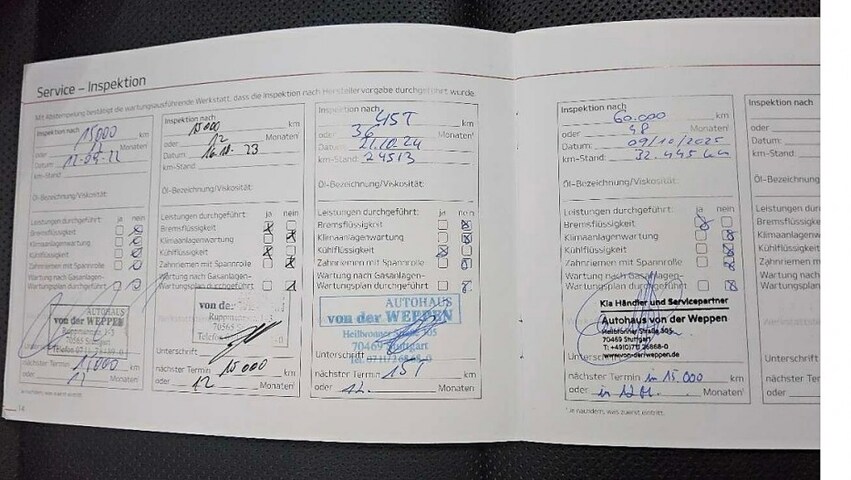 Service – Inspektion
Mit Abstempelung bestätigt die wartungsausführende Werkstatt, dass die Inspektion nach Herstellervorgabe durchgeführt wurde.
Inspektion nach
15000 km
oder 12 Monaten¹
Datum:
km-Stand:
Öl-Bezeichnung/Viskosität:
Leistungen durchgeführt: ja nein
Bremsflüssigkeit
Klimaanlagenwartung
Kühlflüssigkeit
Zahnriemen mit Spannrolle
Wartung nach Gasanlagen-
Wartungsplan durchgeführt
AUTOHAUS
von der WEPPEN
nächster Termin 15000 km
oder 12 Monaten¹
¹ Je nachdem, was zuerst eintritt.
14
Inspektion nach
15000 km
oder 12 Monaten¹
Datum: 23
km-Stand:
Öl-Bezeichnung/Viskosität:
Leistungen durchgeführt: ja nein
Bremsflüssigkeit
Klimaanlagenwartung
Kühlflüssigkeit
Zahnriemen mit Spannrolle
Wartung nach Gasanlagen-
Wartungsplan durchgeführt
von der
70565
Unterschrift
nächster Termin 15000 km
oder 12 Monaten¹
Inspektion nach
45T km
oder 36 Monaten¹
Datum: 21.10.24
km-Stand: 24513
Öl-Bezeichnung/Viskosität:
Leistungen durchgeführt: ja nein
Bremsflüssigkeit
Klimaanlagenwartung
Kühlflüssigkeit
Zahnriemen mit Spannrolle
Wartung nach Gasanlagen-
Wartungsplan durchgeführt
AUTOHAUS
von der WEPPEN
Heilbronner Straße 305
70469 Stuttgart
Unterschrift
nächster Termin 15T km
oder 12. Monaten¹
Inspektion nach
60.000 km
oder 48 Monaten¹
Datum: 09/10/2025
km-Stand: 32.445 km
Öl-Bezeichnung/Viskosität:
Leistungen durchgeführt: ja nein
Bremsflüssigkeit
Klimaanlagenwartung
Kühlflüssigkeit
Zahnriemen mit Spannrolle
Wartung nach Gasanlagen-
Wartungsplan durchgeführt
Kia Händler und Servicepartner
Autohaus von der Weppen
Heilbronner Straße 305
70469 Stuttgart
www.von-der-weppen.de
Unterschrift
nächster Termin in 15.000 km
oder in 12 M. Monaten¹
¹ Je nachdem, was zuerst eintritt.
Inspektion nach
oder
Datum:
km-Stand:
Öl-Bezeichnung/
Leistungen durch
Bremsflüssigkeit
Klimaanlagenwar
Kühlflüssigkeit
Zahnriemen mit S
Wartung nach Ga
Wartungsplan du
Unterschrift
nächster Termin
oder